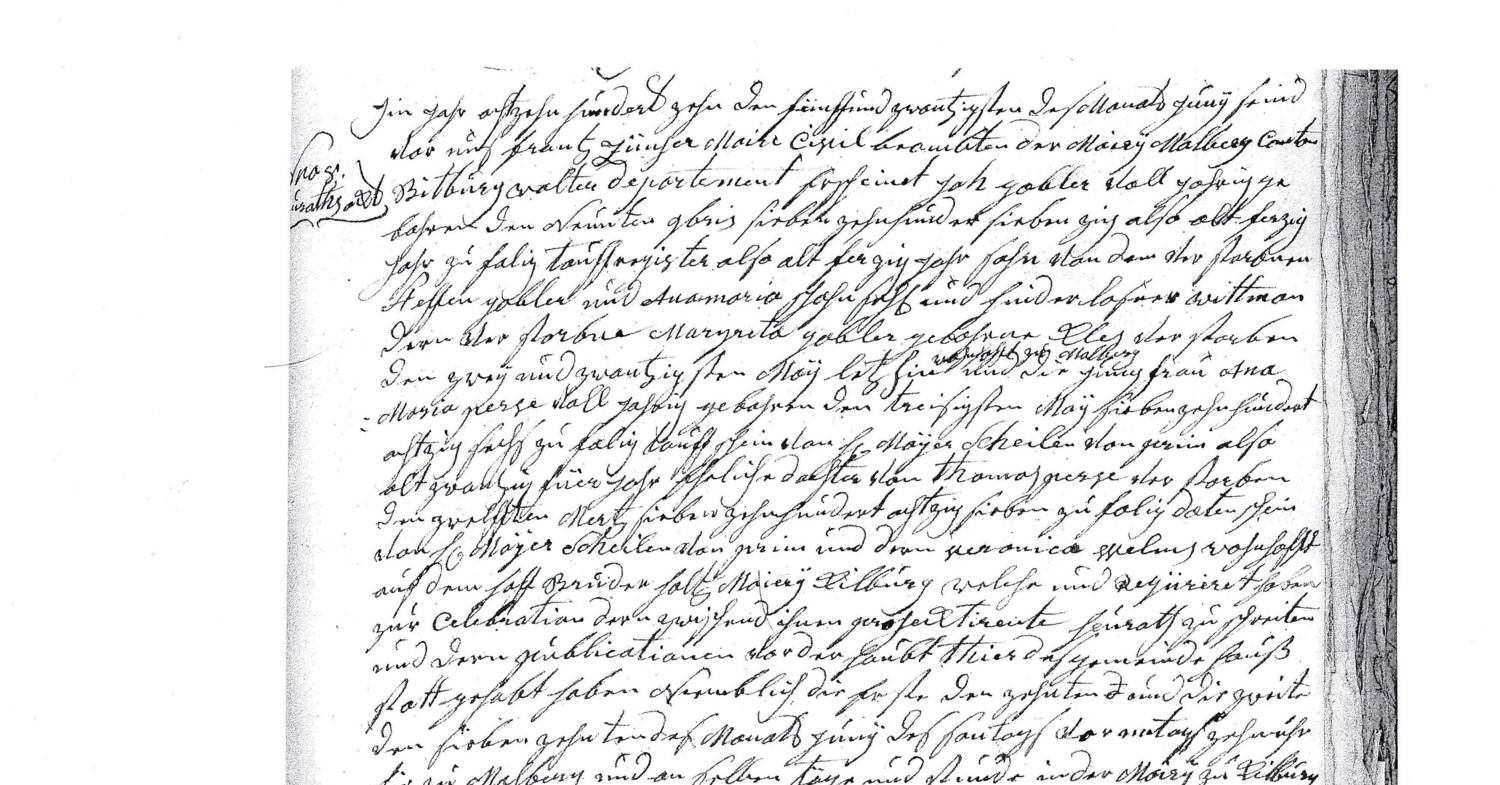 Im Jahr achtzehn hundert zehn den fünffundzwantzigsten des Monats Juny seind
vor uns Frantz Zünser Maire Civil beambten der Mairey Malberg Canton
No 32.
urathsact
Bitburg walter departement Erscheinet Joh gobler voll jahrig ge
bohren den Neunten 9bris siebenzehnhunder siebenzig also alt ferzig
Jahr zu folig tauffregister also alt ferzig Jahr sohn von dem verstorbnen
Steffen gobler und Anamaria und kinderloser wittman
dern verstorbne Margreta gobler gebohrne Kley verstorben
wohnhafft zu Malberg
den zwey und zwantzigsten May letzhin und die jungfrau Ana
Maria perse voll jahrig gebohren den treisigsten May siebenzehnhundert
achtzig sechs zu folig tauffschein von H. Mayer Scheilen von prim also
alt zwantzig füer Jahr Eheliche dochter von Thomas perse verstorben
den zwelfften Mertz siebenzehnhundert achtzig sieben zu folig dotenschein
von H. Mayer Scheilen von prim und dern veronica welms wohnhafft
auf dem hoff Bruderholtz Mairey Kilburg welche uns Requireret haben
zur Celebration dern zwischend ihnen projecktireite heurath zu schreiten
und dern publicationen vor der haubt thier des gemeinde hauß
statt gehabt haben Nemblich die Erste den zehnten und die zweite
den siebenzehnten des Monats Juny des sontags vormitags zehn uhr
hie zu Malberg und an selben tage und stunde in der Mairy zu Kilburg